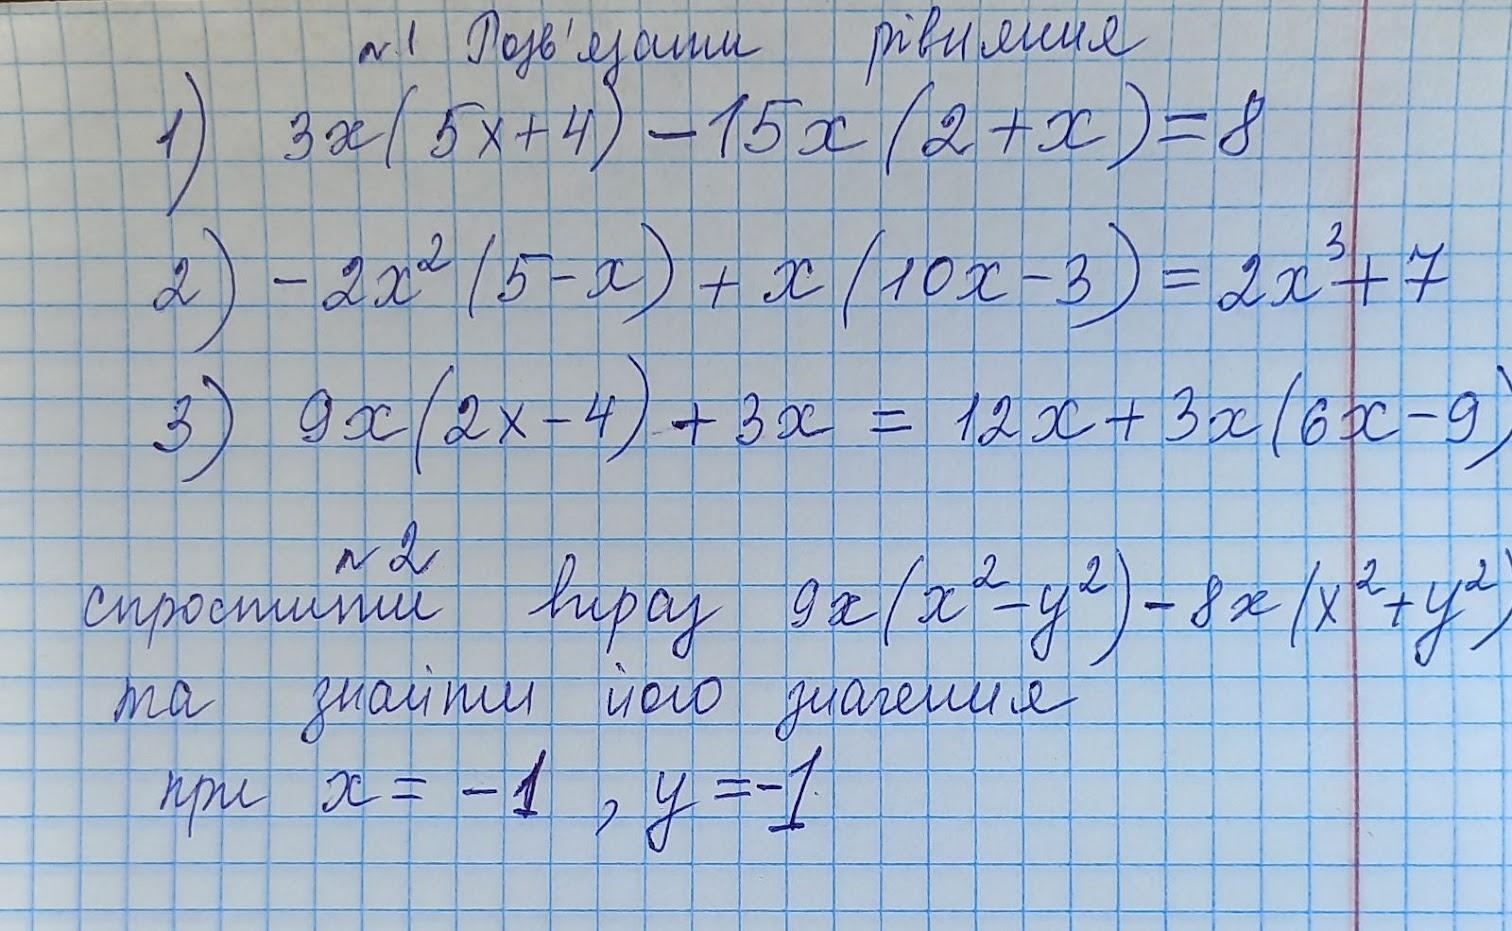 №1 Розв'язати рівняння
1) 3x(5x+4)-15x(2+x)=8
2) -2x²(5-x)+x(10x-3)=2x³+7
3) 9x(2x-4)+3x=12x+3x(6x-9)
№2
спростити вираз 9x(x²-y²)-8x(x²+y²)
та знайти його значення
при x=-1, y=-1